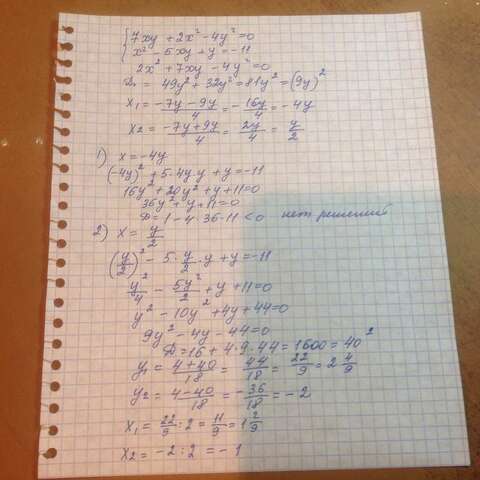 {7xy + 2x² - 4y² = 0
x² - 5xy + y = -11
2x² + 7xy - 4y² = 0
D = 49y² + 32y² = 81y² = (9y)²
x₁ = (-7y - 9y)/4 = -16y/4 = -4y
x₂ = (-7y + 9y)/4 = 2y/4 = y/2
1) x = -4y
(-4y)² + 5·4y·y + y = -11
16y² + 20y² + y + 11 = 0
36y² + y + 11 = 0
D = 1 - 4·36·11 < 0 нет решений
2) x = y/2
(y/2)² - 5·y/2·y + y = -11
y²/4 - 5y²/2 + y + 11 = 0
y² - 10y² + 4y + 44 = 0
9y² - 4y - 44 = 0
D = 16 + 4·9·44 = 1600 = 40²
y₁ = (4 + 40)/18 = 44/18 = 22/9 = 2 4/9
y₂ = (4 - 40)/18 = -36/18 = -2
x₁ = 22/9 : 2 = 11/9 = 1 2/9
x₂ = -2 : 2 = -1